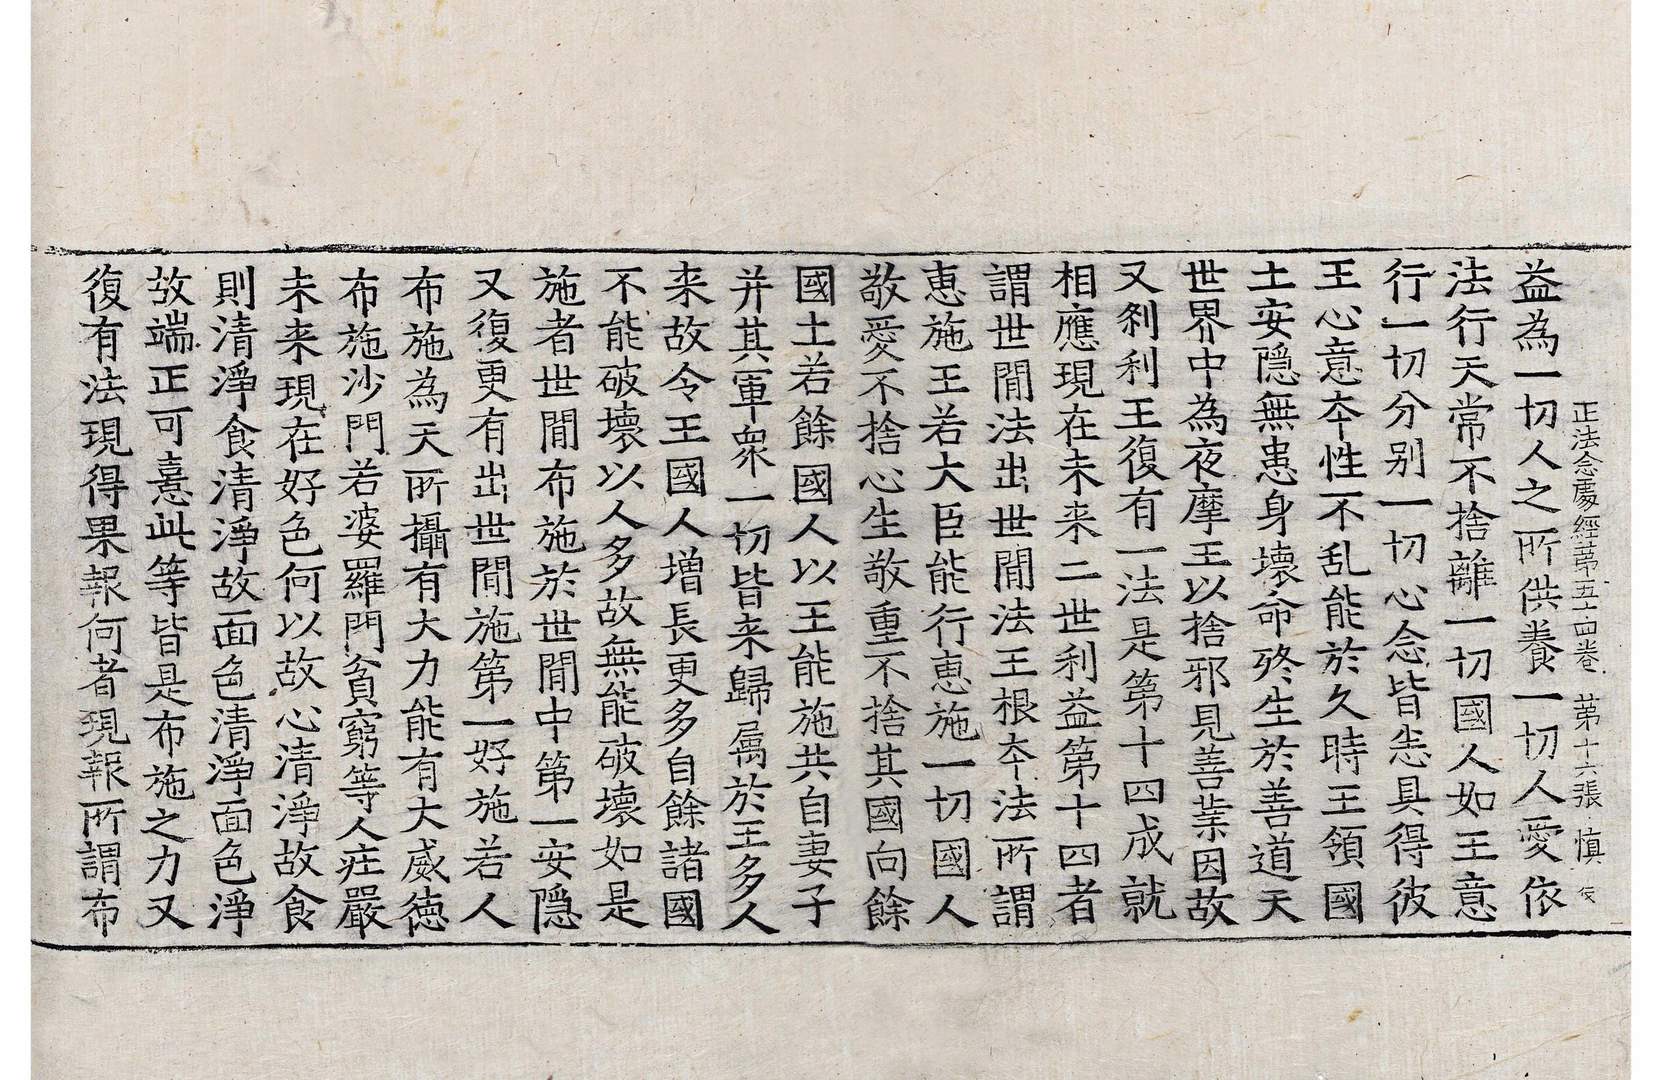 正法念處經苐五十四卷 苐十六張 慎
益為一切人之所供養一切人愛依
法行天常不捨離一切國人如王意
行一切分别一切心念皆悉具得彼
王心意夲性不乱能於久時王領國
土安隱無患身壞命終生於善道天
世界中為夜摩王以捨邪見善業因故
又刹利王復有一法是第十四成就
相應現在未来二世利益第十四者
謂世間法出世間法王根夲法所謂
惠施王若大臣能行惠施一切國人
敬愛不捨心生敬重不捨其國向餘
國土若餘國人以王能施共自妻子
并其軍衆一切皆来歸属於王多人
来故令王國人增長更多自餘諸國
不能破壞以人多故無能破壞如是
施者世間布施於世間中第一安隱
又復更有出世間施第一好施若人
布施為天所攝有大力能有大威徳
布施沙門若婆羅門貧窮等人庄嚴
未来現在好色何以故心清淨故食
則清淨食清淨故面色清淨面色淨
故端正可憙此等皆是布施之力又
復有法現得果報何者現報所謂布